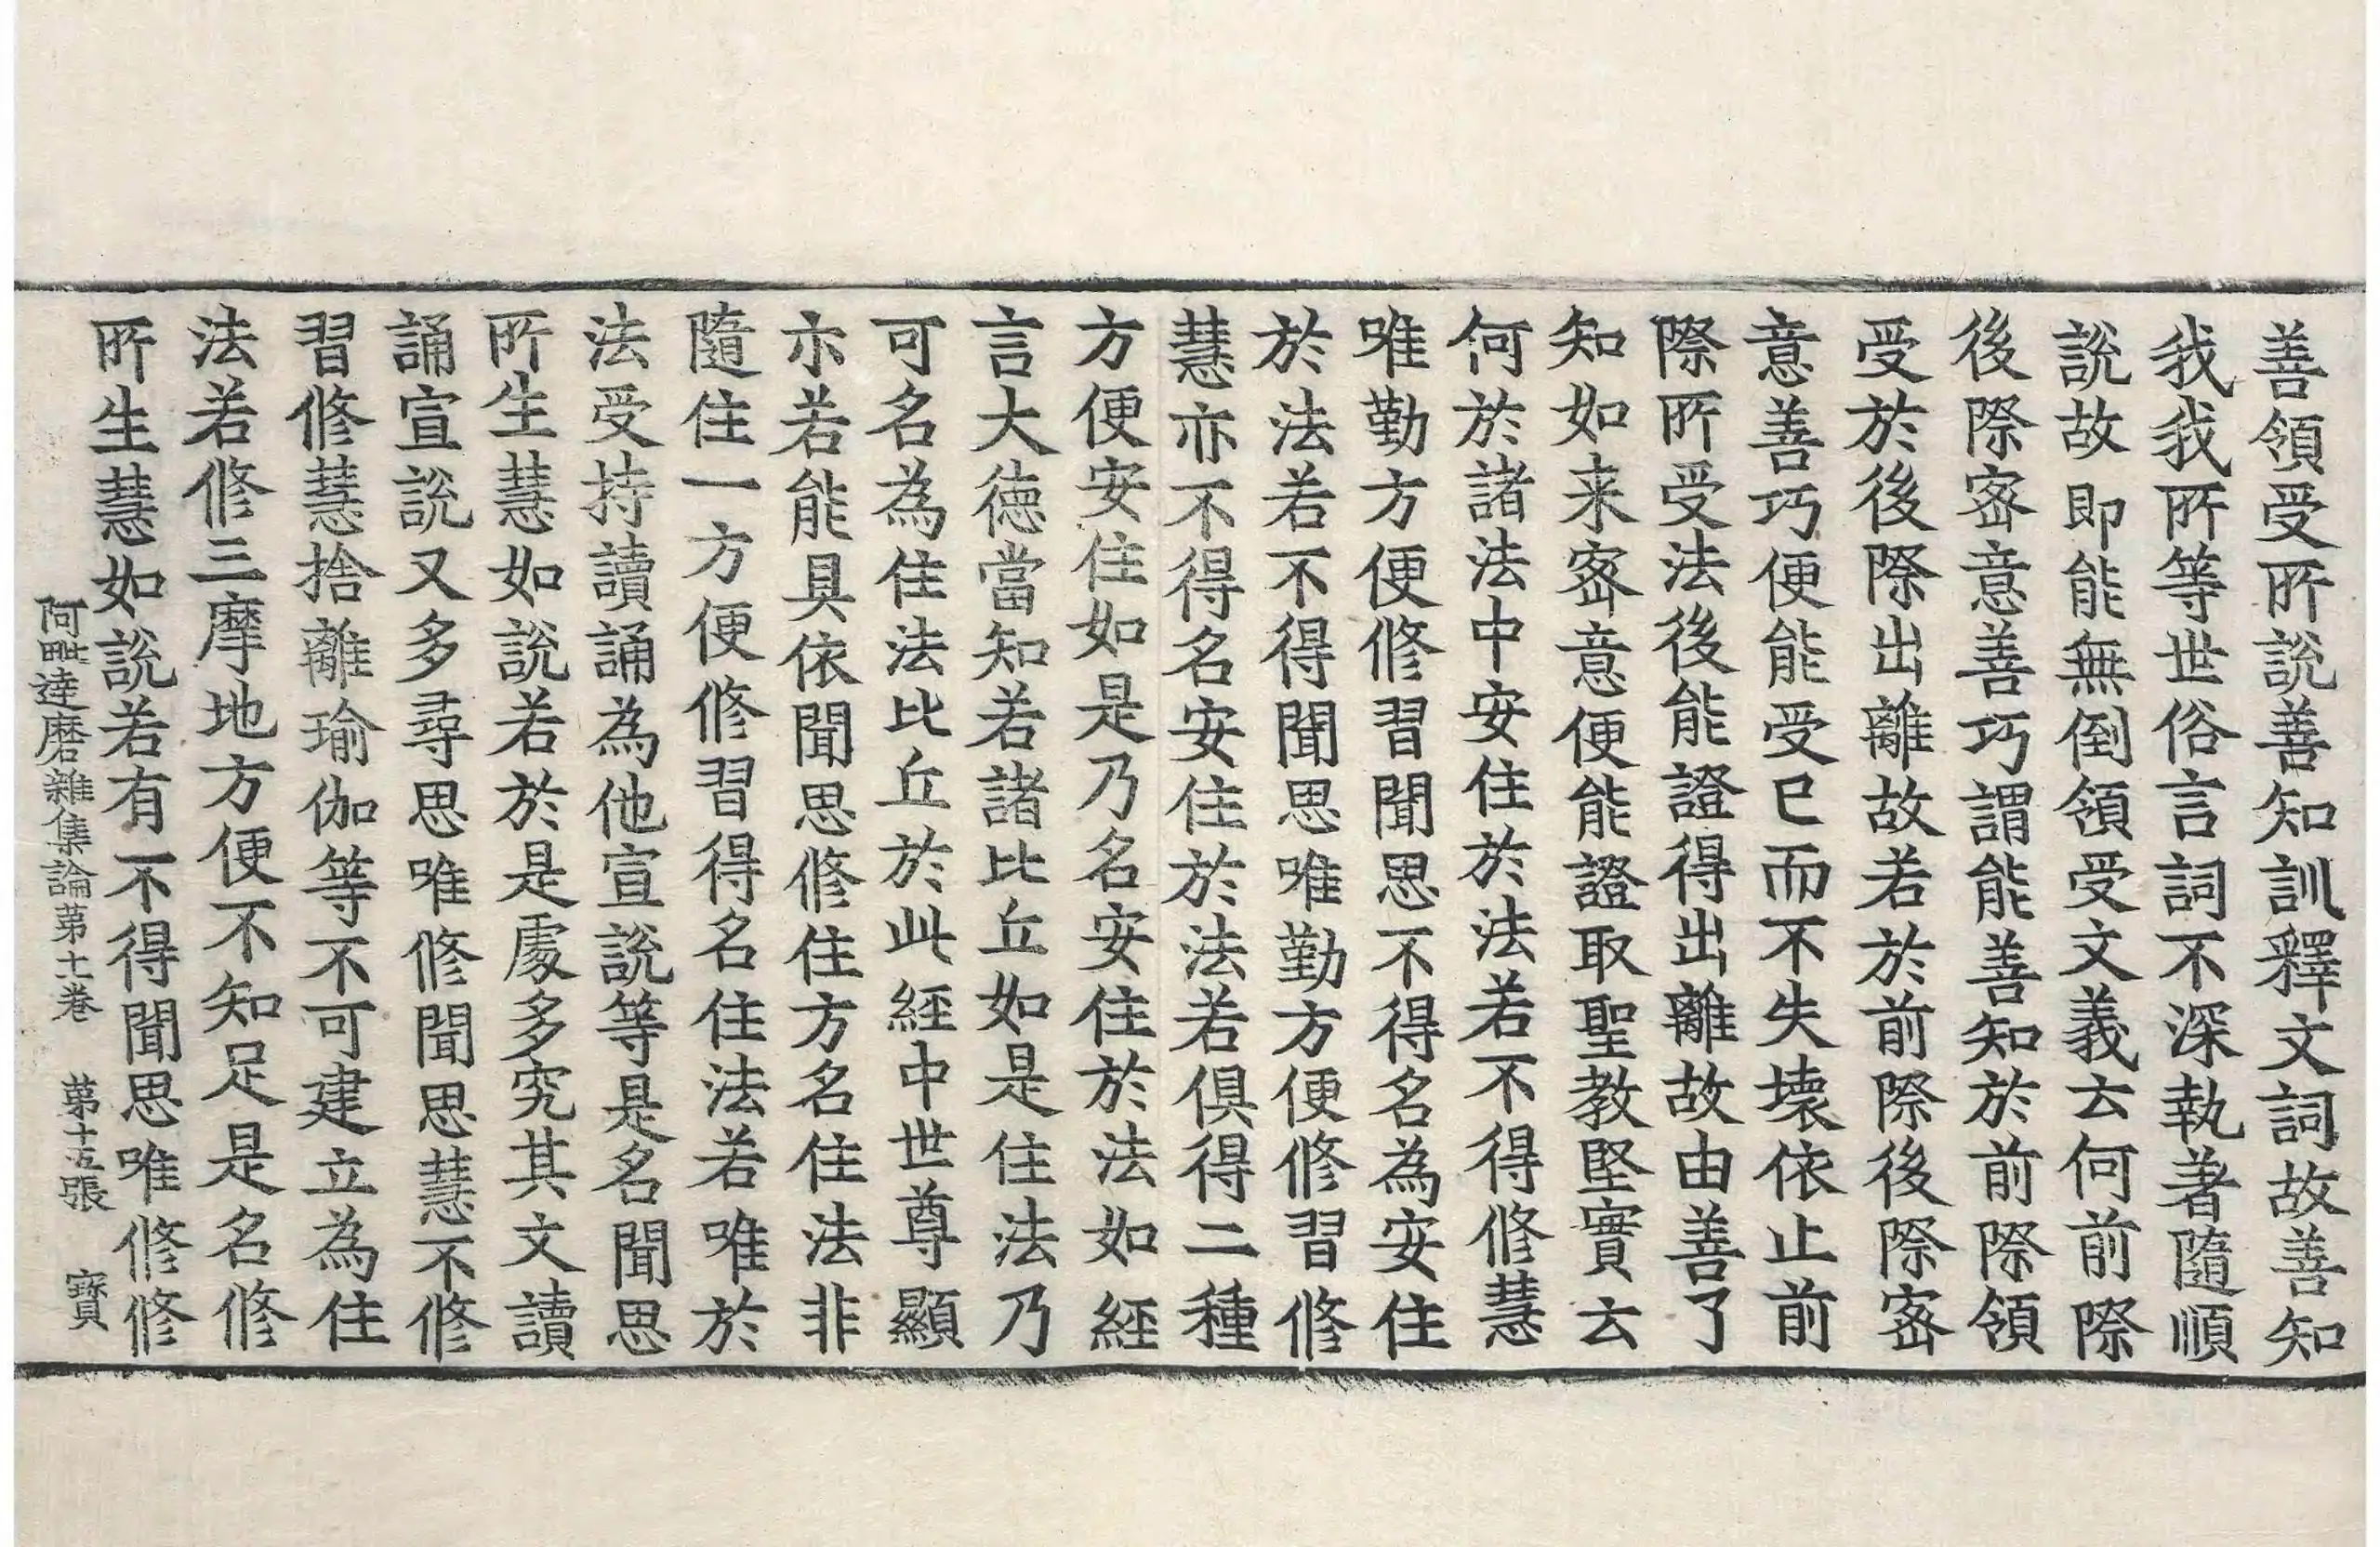 善領受所說善知訓釋文詞故善知
我我所等世俗言詞不深執著隨順
說故即能無倒領受文義云何前際
後際宻意善巧謂能善知於前際領
受於後際出離故若於前際後際宻
意善巧便能受已而不失壞依止前
際所受法後能證得出離故由善了
知如来宻意便能證取聖教堅實云
何於諸法中安住於法若不得修慧
唯勤方便修習聞思不得名為安住
於法若不得聞思唯勤方便修習修
慧亦不得名安住於法若俱得二種
方便安住如是乃名安住於法如經
言大德當知若諸比丘如是住法乃
可名為住法比丘於此經中世尊顯
示若能具依聞思修住方名住法非
隨住一方便修習得名住法若唯於
法受持讀誦為他宣說等是名聞思
所生慧如說若於是處多究其文讀
誦宣說又多尋思唯修聞思慧不修
習修慧捨離瑜伽等不可建立為住
法若修三摩地方便不知足是名修
所生慧如說若有不得聞思唯修修
阿毗達磨雜集論第十一卷 第十五張 寶